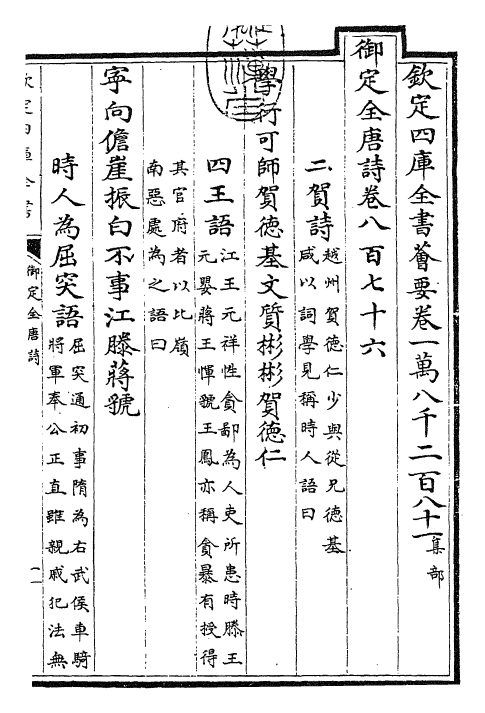 欽定四庫全書薈要卷一萬八千二百八十一集部
御定全唐詩卷八百七十六
二賀詩越州賀德仁少與從兄德基
咸以詞學見稱時人語曰
學行可師賀德基文質彬彬賀德仁
四王語江王元祥性貪鄙為人吏所患時滕王
元嬰蔣王惲虢王鳳亦稱貪暴有授得
其官府者以比嶺
南惡處為之語曰
寧向儋崖振白不事江滕蔣虢
時人為屈突語屈突通初事隋為右武侯車騎
將軍奉公正直雖親戚犯法無
欽定四庫全書
御定全唐詩
一